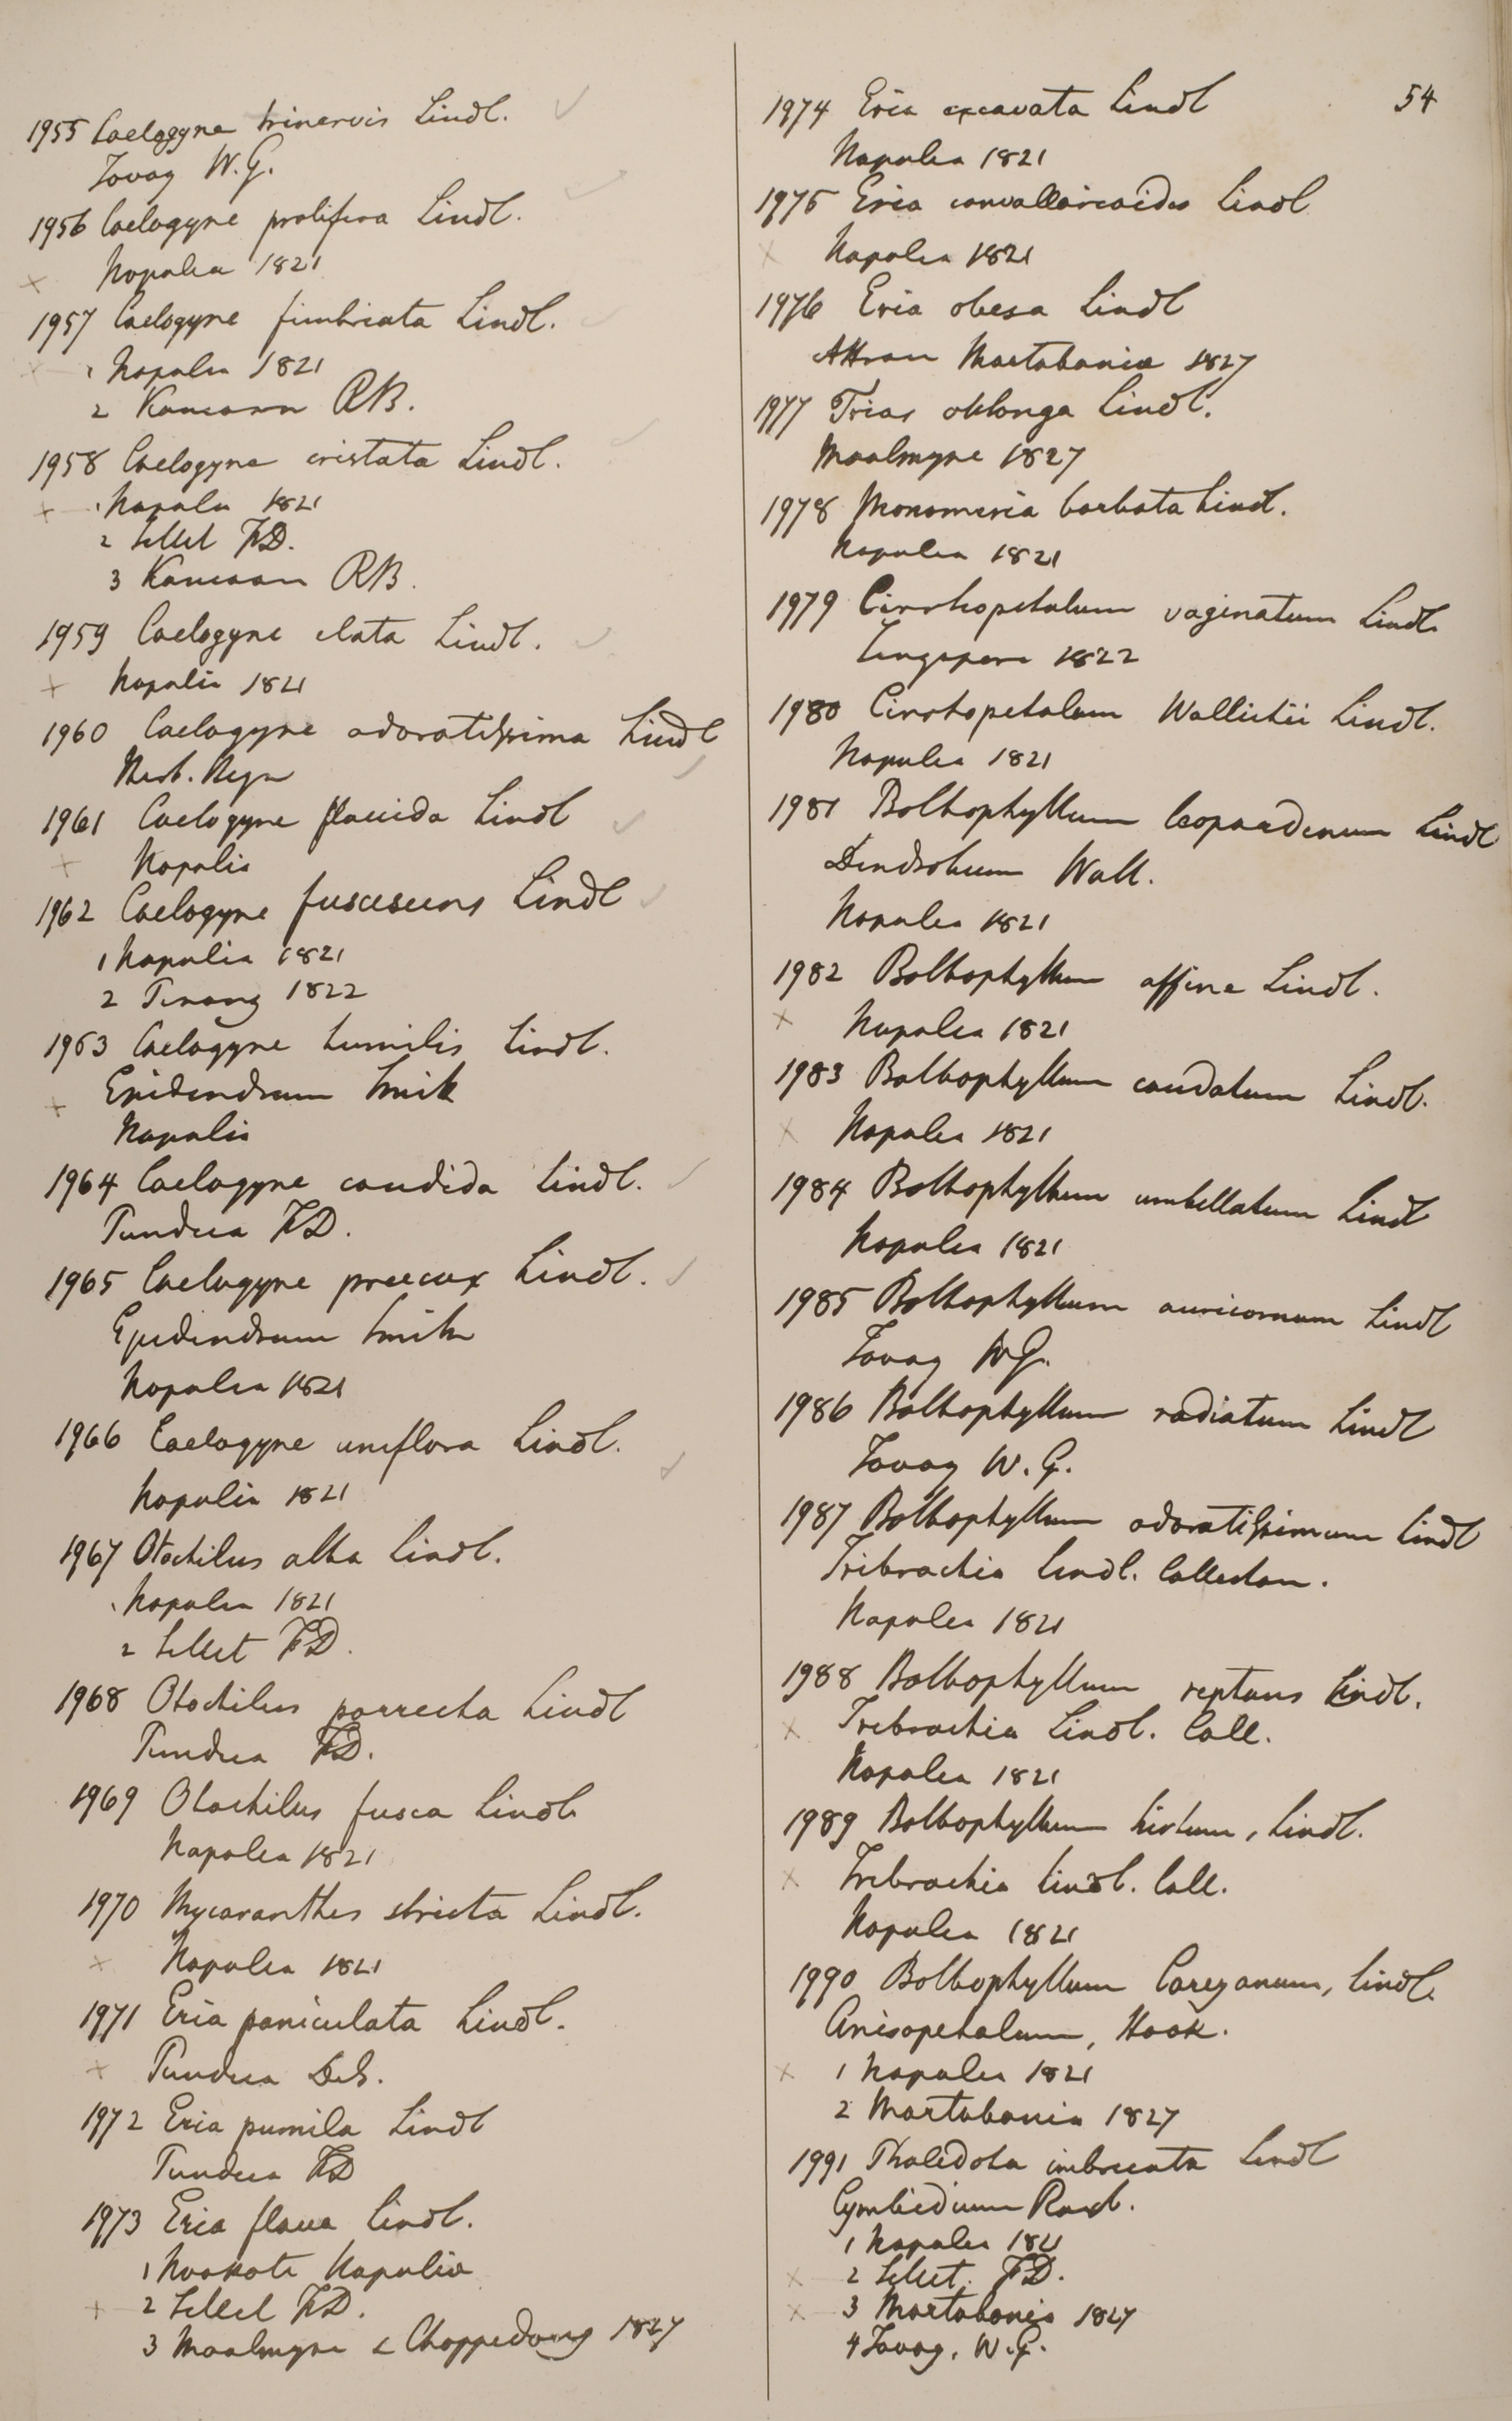 1955 Caelogyne trinervis Lindl.
Tavoy W.G.
1956 Caelogyne prolifera Lindl.
Napalia 1821
1957 Caelogyne fimbriata Lindl.
1 Napalia 1821
2 Kamaon RB.
1958 Caelogyne cristata Lindl.
1 Napalia 1821
2 Sillet FD.
3 Kamaon RB.
1959 Caelogyne elata Lindl.
Napalia 1821
1960 Caelogyne odoratissima Lindl
1961 Caelogyne flaccida Lindl
Napalia
1962 Caelogyne fuscescens Lindl
1 Napalia 1821
2 Penang 1822
1963 Caelogyne humilis Lindl.
Epidendrum Smith
Napalia
1964 Caelogyne candida Lindl.
Pundua FD.
1965 Caelogyne praecox Lindl.
Epidendrum Smith
Napalia 1821
1966 Caelogyne uniflora Lindl.
Napalia 1821
1967 Otochilus alba Lindl.
1 Napalia 1821
2 Sillet FD.
1968 Otochilus porrecta Lindl
Pundua FD.
1969 Otochilus fusca Lindl
Napalia 1821
1970 Mycaranthes stricta Lindl.
Napalia 1821
1971 Eria paniculata Lindl.
Pundua DeS.
1972 Eria pumila Lindl
Pundua FD
1973 Eria flava Lindl.
1 Noakote Napaliae
2 Sillet FD.
3 Moalmyne & Choppedong 1827
54
1974 Eria excavata Lindl
Napalia 1821
1975 Eria convallarioides Lindl
Napalia 1821
1976 Eria obesa Lindl
Attran Martabaniae 1827
1977 Trias oblonga Lindl.
Moalmyne 1827
1978 Monomeria barbata Lindl.
Napalia 1821
1979 Cirrhopetalum vaginatum Lindl
Singapore 1822
1980 Cirrhopetalum Wallichii Lindl.
Napalia 1821
1981 Bolbophyllum leopardinum Lindl
Dendrobium Wall.
Napalia 1821
1982 Bolbophyllum affine Lindl.
Napalia 1821
1983 Bolbophyllum caudatum Lindl.
Napalia 1821
1984 Bolbophyllum umbellatum Lindl
Napalia 1821
1985 Bolbophyllum auricomum Lindl
Tavoy WG.
1986 Bolbophyllum radiatum Lindl
Tavoy W.G.
1987 Bolbophyllum odoratissimum Lindl
Tribrachia Lindl. Collectan.
Napalia 1821
1988 Bolbophyllum reptans Lindl.
Tribrachia Lindl. Coll.
Napalia 1821
1989 Bolbophyllum hirtum, Lindl.
Tribrachia Lindl. Coll.
Napalia 1821
1990 Bolbophyllum Careyanum, Lindl.
Anisopetalum, Hook.
1 Napalia 1821
2 Martabania 1827
1991 Pholidota imbricata Lindl
Cymbidium Roxb.
1 Napalia 1821
2 Sillet. FD.
3 Martabania 1827
4 Tavoy, W.G.